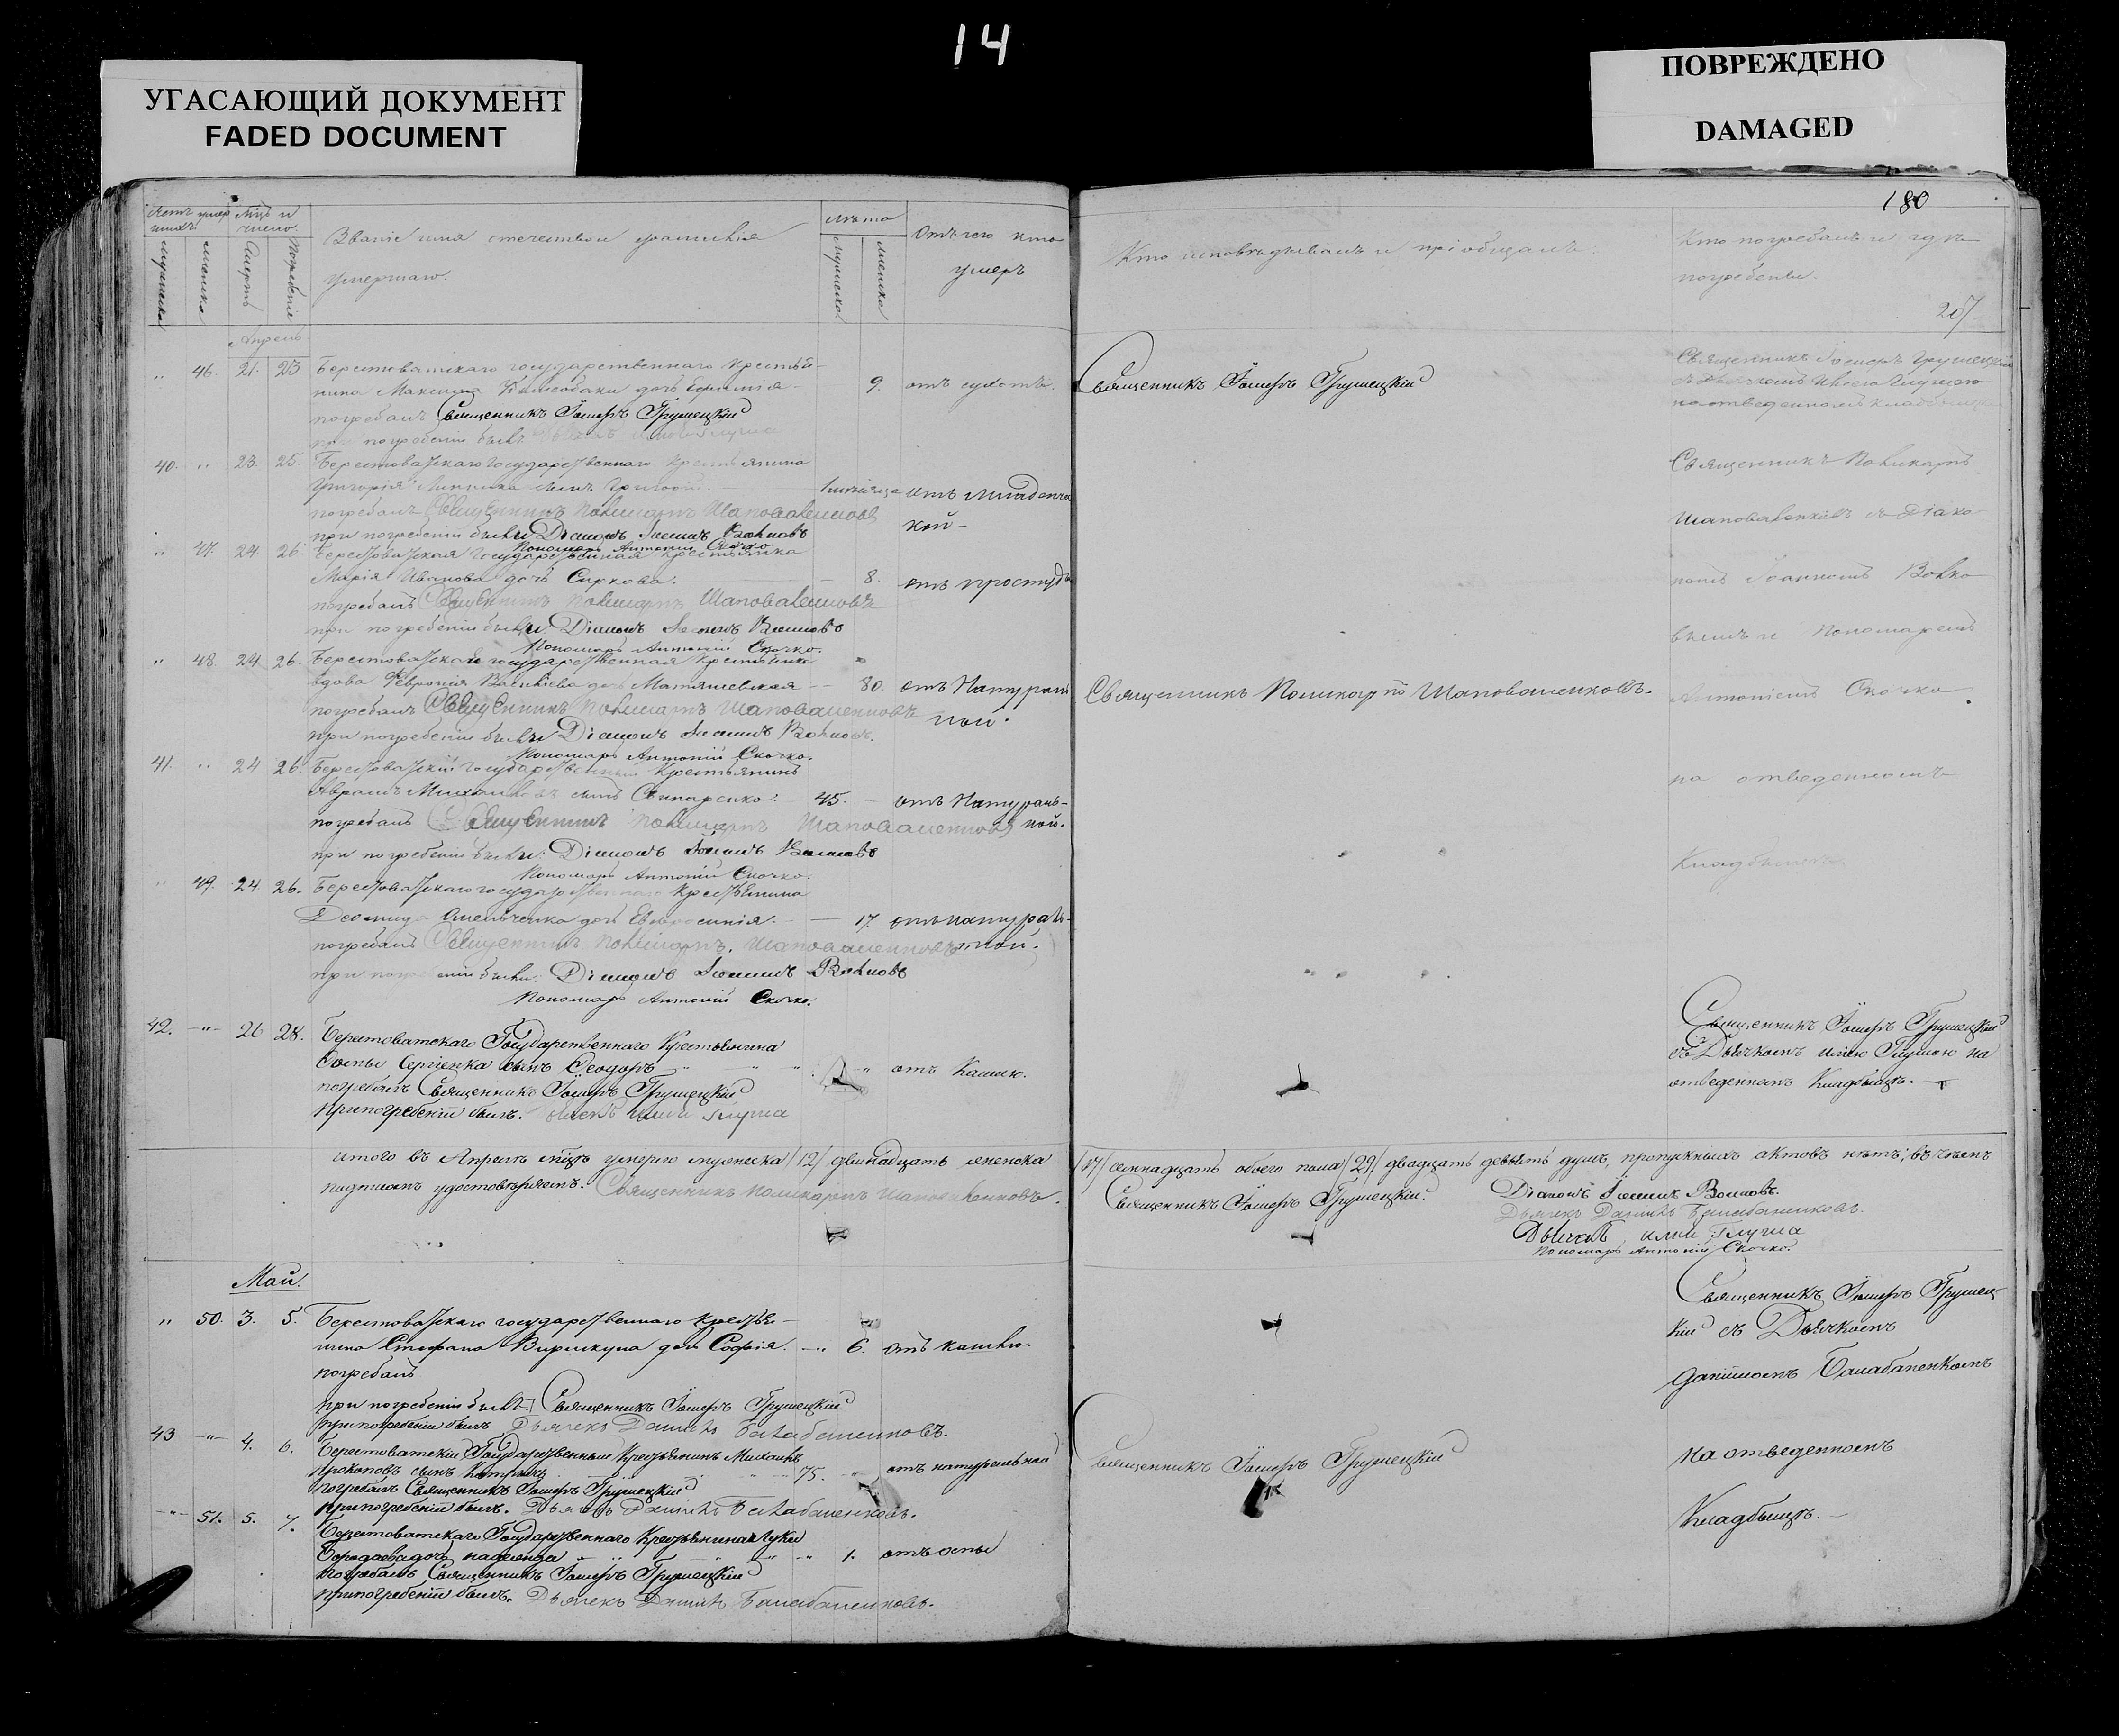 14
УГАСАЮЩИЙ ДОКУМЕНТ
FADED DOCUMENT
ПОВРЕЖДЕНО
DAMAGED
180
Званіе имя отечество и фамилія
умершаго.
Мужеска
Женска
Смерть
Погребеніе
Лѣта
Мужеска
Женска
Отъ чего кто
умеръ
Кто исповѣдывалъ и пріобщалъ.
Кто погребалъ и гдѣ
погребены.
207
Апрель
46. 21. 23. Берестоватскаго государственнаго крестья-
нина Максима дочь 9.
погребалъ Священникъ Іосифъ Грушецкій
при погребеніи былъ
Священникъ Іосифъ Грушецкій
Священникъ Іосифъ Грушецкій
на отведенномъ кладбищѣ
40. 23. 25. Берестоватскаго государственнаго крестьянина
Григорія сынъ Григорій 1 мѣсяца отъ младенче
погребалъ Священникъ Поликарпъ Шаповаленковъ
кой
при погребеніи были Діаконъ Іоаннъ Волковъ
Пономарь Антоній Скочко
47. 24. 26. Берестоватская государственная крестьянка
Марія Иванова дочь Сиркова. 8. отъ простуды
погребалъ Священникъ Поликарпъ Шаповаленковъ
при погребеніи были Діаконъ Іоаннъ Волковъ
Пономарь Антоній Скочко.
48. 24. 26. Берестоватская государственная крестьянка
вдова Февронія дочь Матяшевская 80. отъ натураль
погребалъ Священникъ Поликарпъ Шаповаленковъ
ной.
при погребеніи были Діаконъ Іоаннъ Волковъ.
Пономарь Антоній Скочко.
Священникъ Поликарпъ Шаповаленковъ.
41. 24 26. Берестоватскій государственный крестьянинъ
Аврамъ сынъ 45. отъ натураль-
погребалъ Священникъ Поликарпъ Шаповаленковъ ной.
при погребеніи были: Діаконъ Іоаннъ Волковъ
Пономарь Антоній Скочко.
49. 24 26. Берестоватскаго государственнаго крестьянина
дочь Евфросинія. 17. отъ натураль-
погребалъ Священникъ Поликарпъ Шаповаленковъ ной.
при погребеніи были: Діаконъ Іоаннъ Волковъ
Пономарь Антоній Скочко.
Священникъ Поликарпъ
Шаповаленковъ съ Діако
номъ Іоанномъ Волко
вымъ и Пономаремъ
Антоніемъ Скочко
на отведенномъ
Кладбищѣ.
42. 26 28. Берестоватскаго Государственнаго Крестьянина
Сергіенка сынъ Феодоръ отъ кашлю.
погребалъ Священникъ Іосифъ Грушецкій
при погребеніи былъ.
Священникъ Іосифъ Грушецкій
съ Дьячкомъ на
отведенномъ Кладбищѣ.
Итого въ Апрелѣ мцѣ умерло мужеска /12/ двѣнадцать женска
/17/ семнадцать обоего пола /29/ двадцать девять душъ, пропускныхъ актовъ нѣтъ; въ чемъ
подписомъ удостовѣряемъ. Священникъ Поликарпъ Шаповаленковъ.
Священникъ Іосифъ Грушецкій.
Діаконъ Іоаннъ Волковъ.
Дьячекъ Даніилъ Балабаненковъ.
Пономарь Антоній Скочко.
Май.
50. 3. 5. Берестоватскаго государственнаго крестья-
нина Стефана дочь Софія. 6. отъ кашлю.
погребалъ
при погребеніи былъ Священникъ Іосифъ Грушецкій
при погребеніи былъ Дьячекъ Даніилъ Балабаненковъ.
Священникъ Іосифъ Грушец
кій съ Дьячкомъ
Даніиломъ Балабаненкомъ
43 4. 6. Берестоватскій Государственный Крестьянинъ Михаилъ
Прокоповъ сынъ 75. отъ натуральной
погребалъ Священникъ Іосифъ Грушецкій
при погребеніи былъ. Дьячекъ Даніилъ Балабаненковъ.
Священникъ Іосифъ Грушецкій
на отведенномъ
Кладбищѣ.
51. 5. 7. Берестоватскаго Государственнаго Крестьянина Луки
дочь Надежда 1. отъ оспы
погребалъ Священникъ Іосифъ Грушецкій
при погребеніи былъ. Дьячекъ Даніилъ Балабаненковъ.